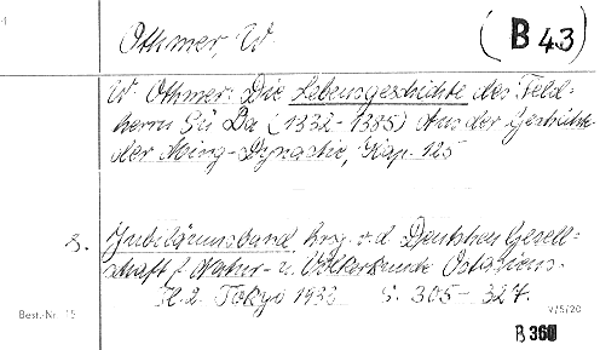 Othmer, W.
(B 43)
W. Othmer: Die Lebensgeschichte des Feld=
herrn Sü Da (1332-1385) Aus der Geschichte
der Ming-Dynastie, Kap. 125
s. Jubiläumsband, hrsg. v. d. Deutschen Gesell=
schaft f. Natur- u. Völkerkunde Ostasiens.
Tl. 2. Tokyo 1933 S. 305-327.
Best.-Nr. 15
V/5/20
B 360